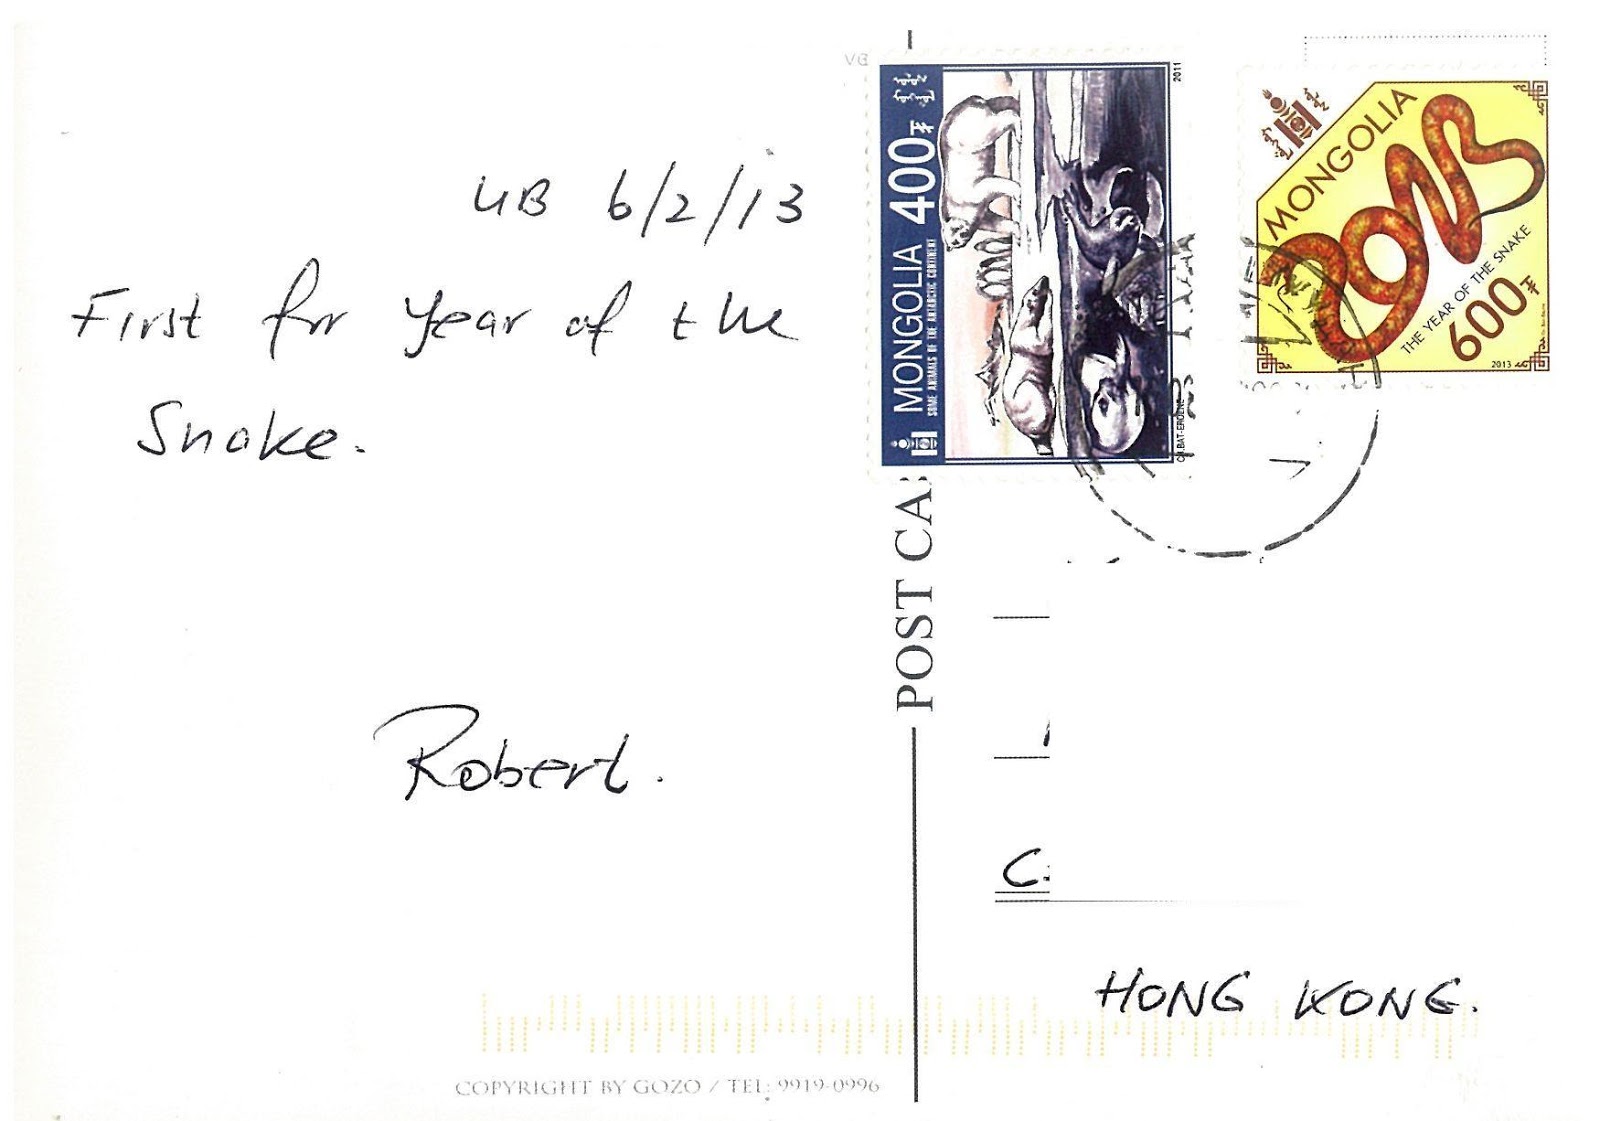 UB 6/2/13
First for Year of the
Snake.
Robert.
COPYRIGHT BY GOZO / TEL: 9919-0996
POST CA
MONGOLIA 400₮
SOME ANIMALS OF THE ANTARCTIC CONTINENT
2011
MONGOLIA
2013
THE YEAR OF THE SNAKE
600₮
2013
C.
HONG KONG.